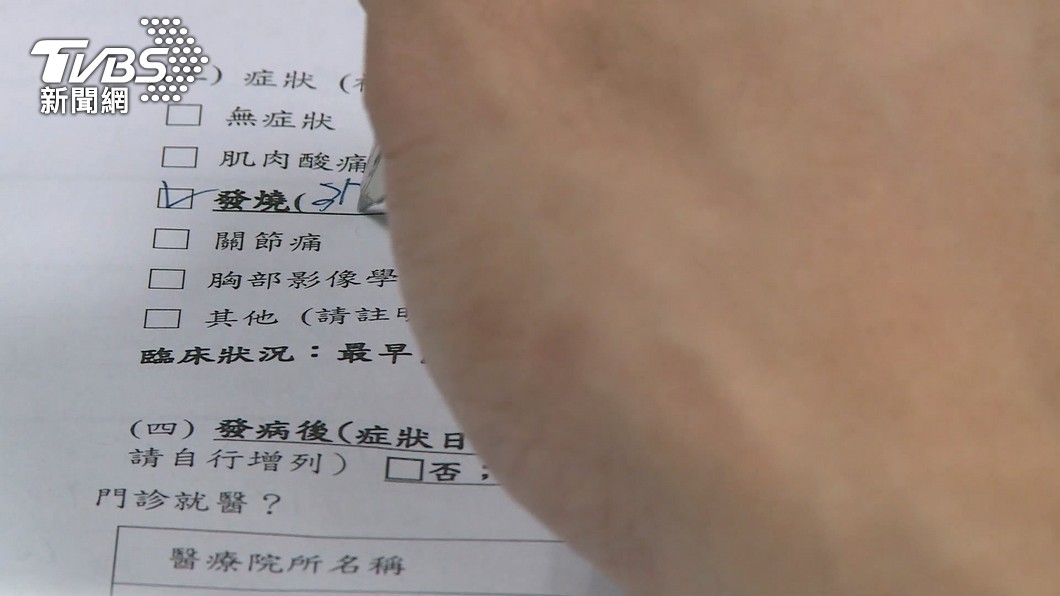 TVBS
新聞網
) 症狀 (
□ 無症狀
□ 肌肉酸痛
☑ 發燒(
□ 關節痛
□ 胸部影像學
□ 其他 (請註明
臨床狀況：最早
(四) 發病後(症狀日
請自行增列) □否；
門診就醫？
醫療院所名稱